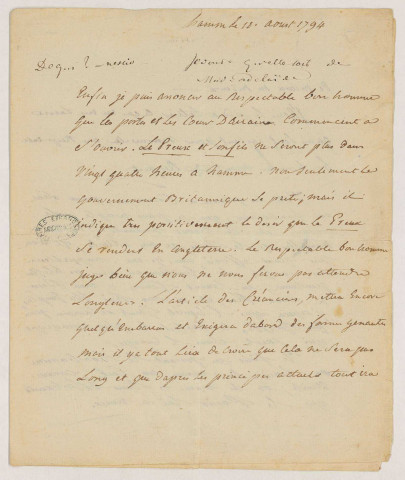 hamm le 18 aoust 1794
De qui ? - 
je crois qu'elle est de
Mad adelaide
Enfin je puis anoncer au Respectable bonhomme
que les portes et les Coeurs D'airain Commencent a
S'ouvrir. Le Preux et son fils ne Seront plus dans
Vingt quatre heures a hamm. non seulement le
gouvernement Britannique Se prete, mais il
indique tres positivement le desir que le Preux
Se rendent en Angleterre. Le Respectable bonhomme
juge bien que nous ne nous ferons pas attendre
Longtems. L'article des Créanciers, mettra Encore
quelqu'Embarras et Exigera d'abord des formes genantes
mais il y a tout Lieu de Croire que Cela ne Sera pas
Long et que d'apres les principes actuels tout ira